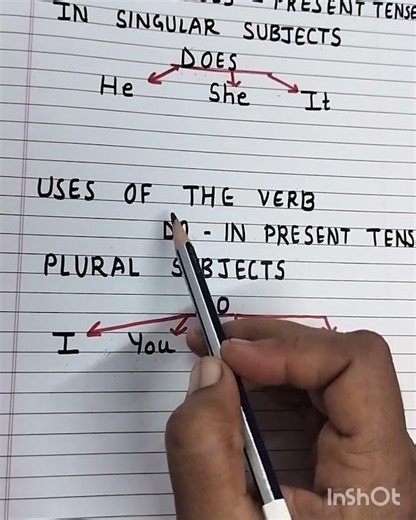 PRESENT TENSE
IN SINGULAR SUBJECTS
DOES
He She It
USES OF THE VERB
DO - IN PRESENT TENS
PLURAL SUBJECTS
I You
InShOt